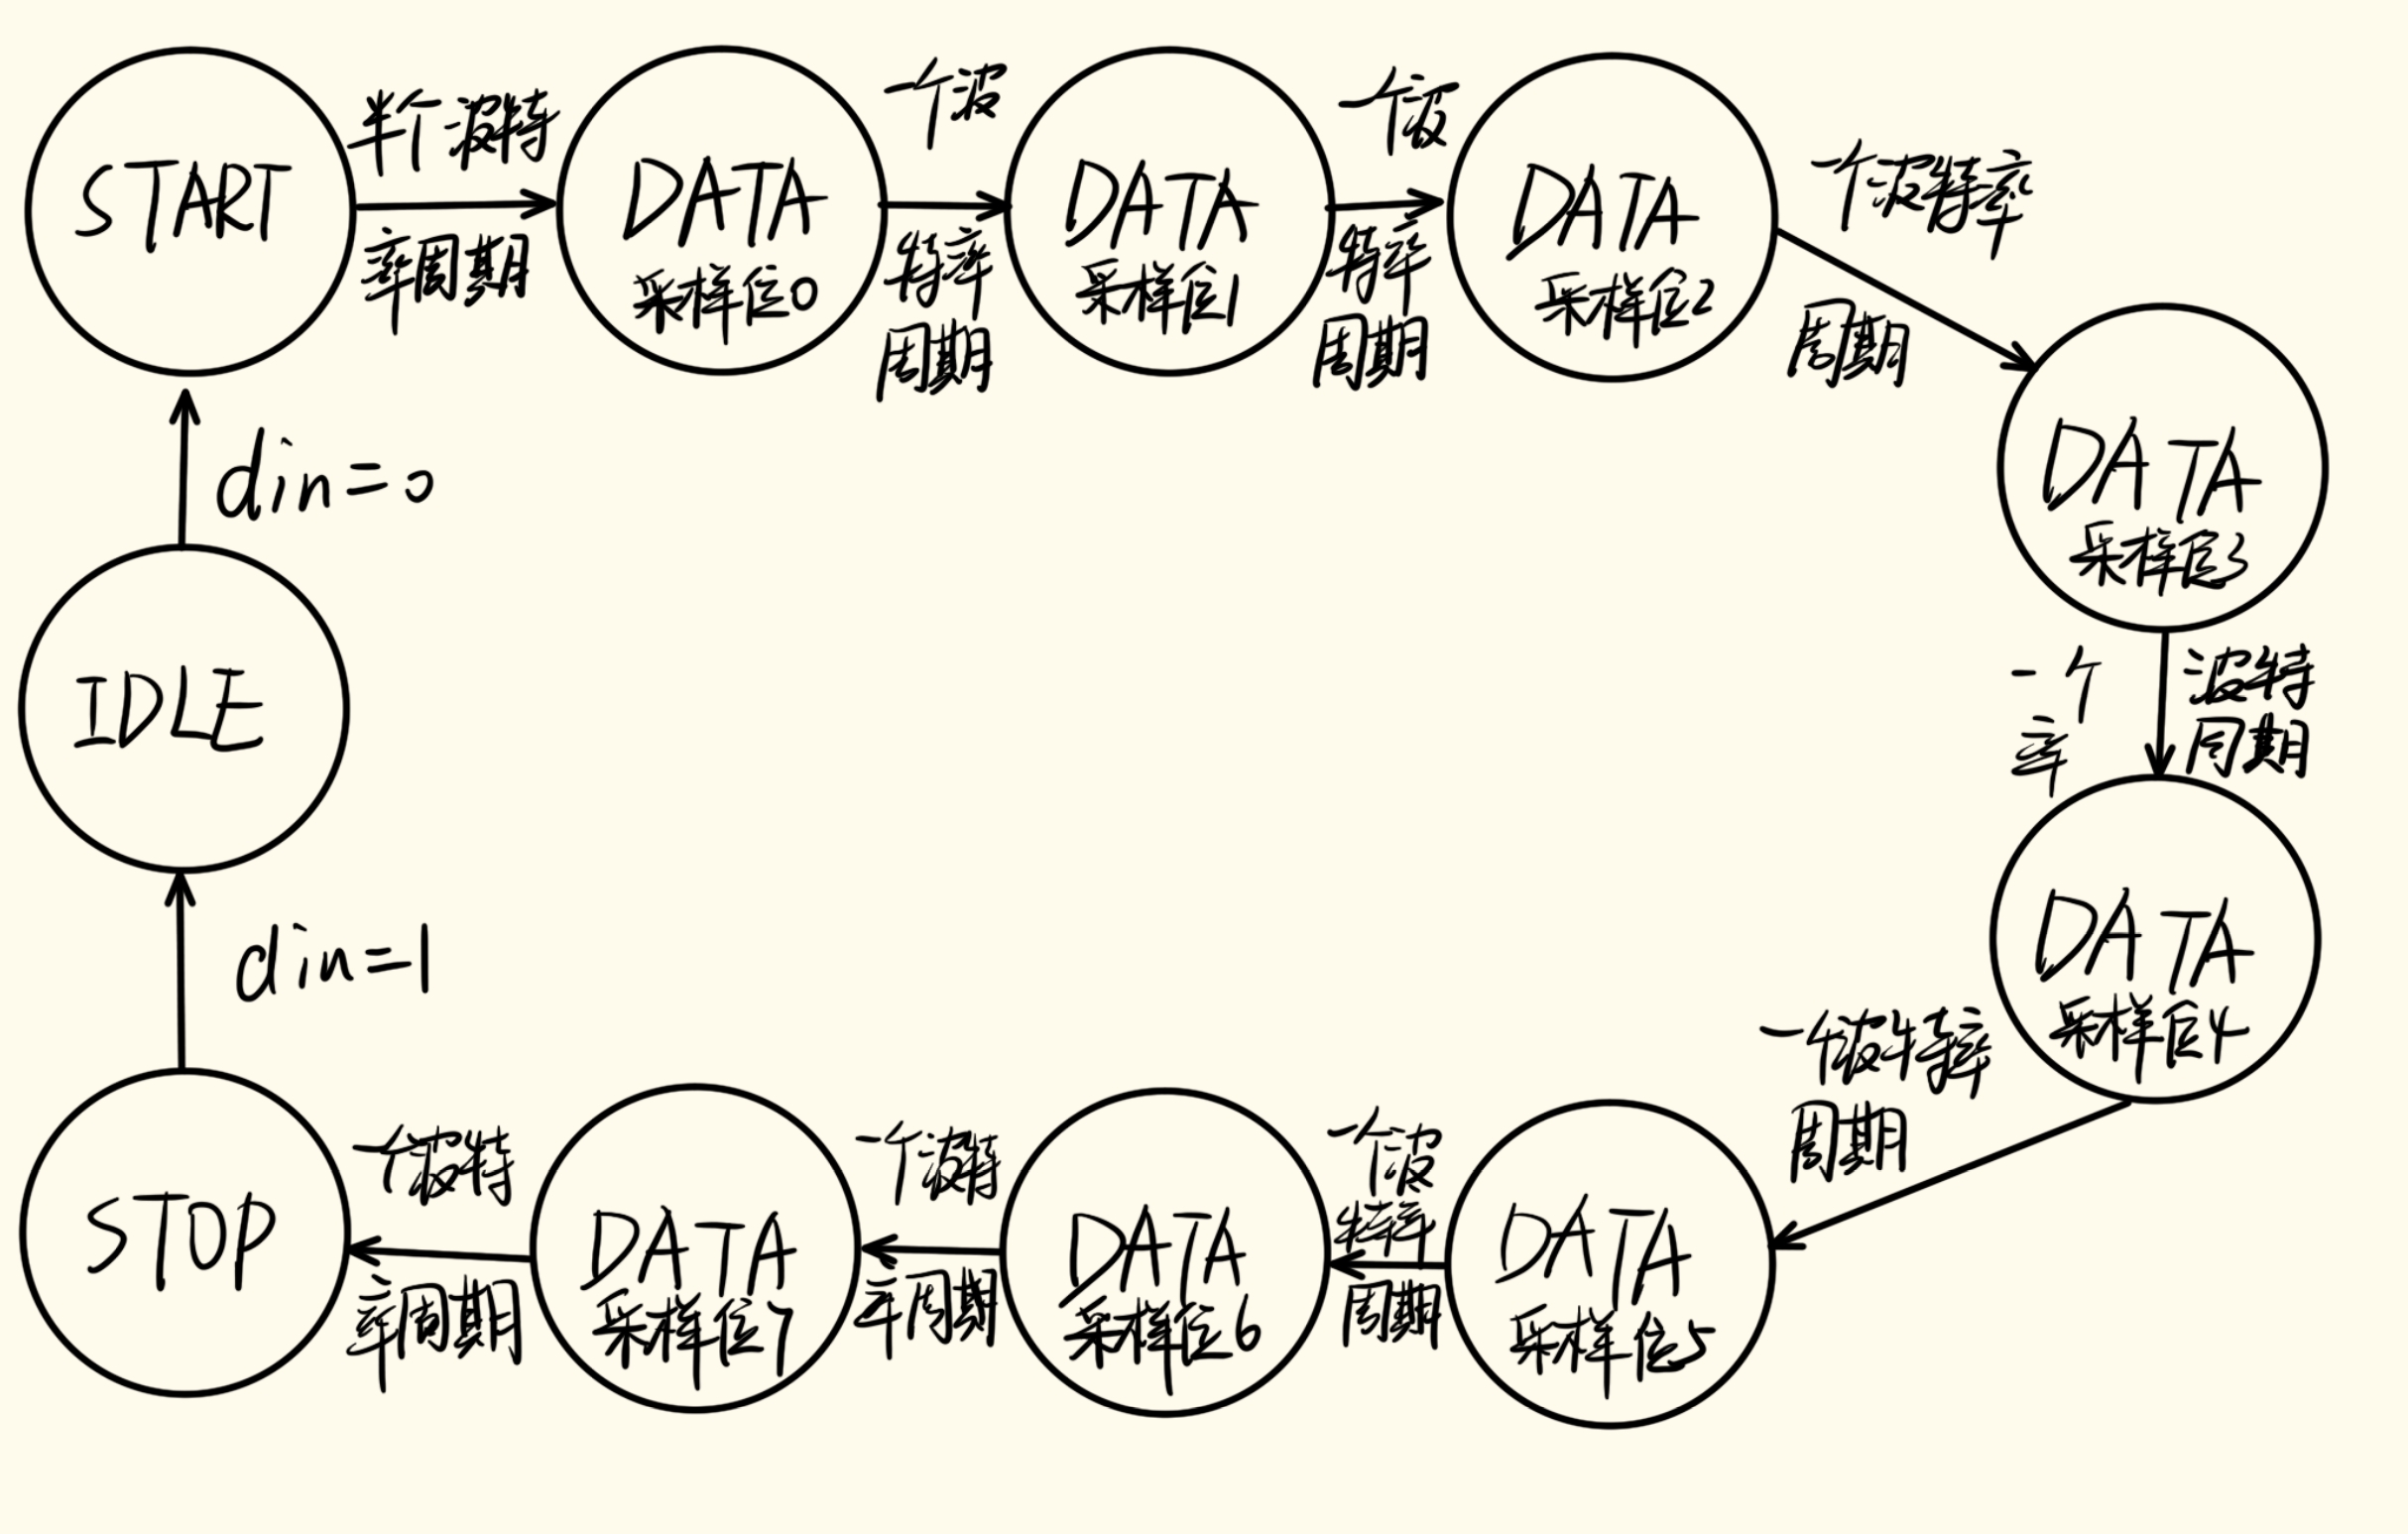 START
半个波特
率周期
DATA
采样位0
一个波
特率
周期
DATA
采样位1
一个波
特率
周期
DATA
采样位2
一个波特率
周期
DATA
采样位3
一个波特
率周期
DATA
采样位4
一个波特率
周期
DATA
采样位5
一个波
特率
周期
DATA
采样位6
一个波特
率周期
DATA
采样位7
一个波特
率周期
STOP
din=1
IDLE
din=0